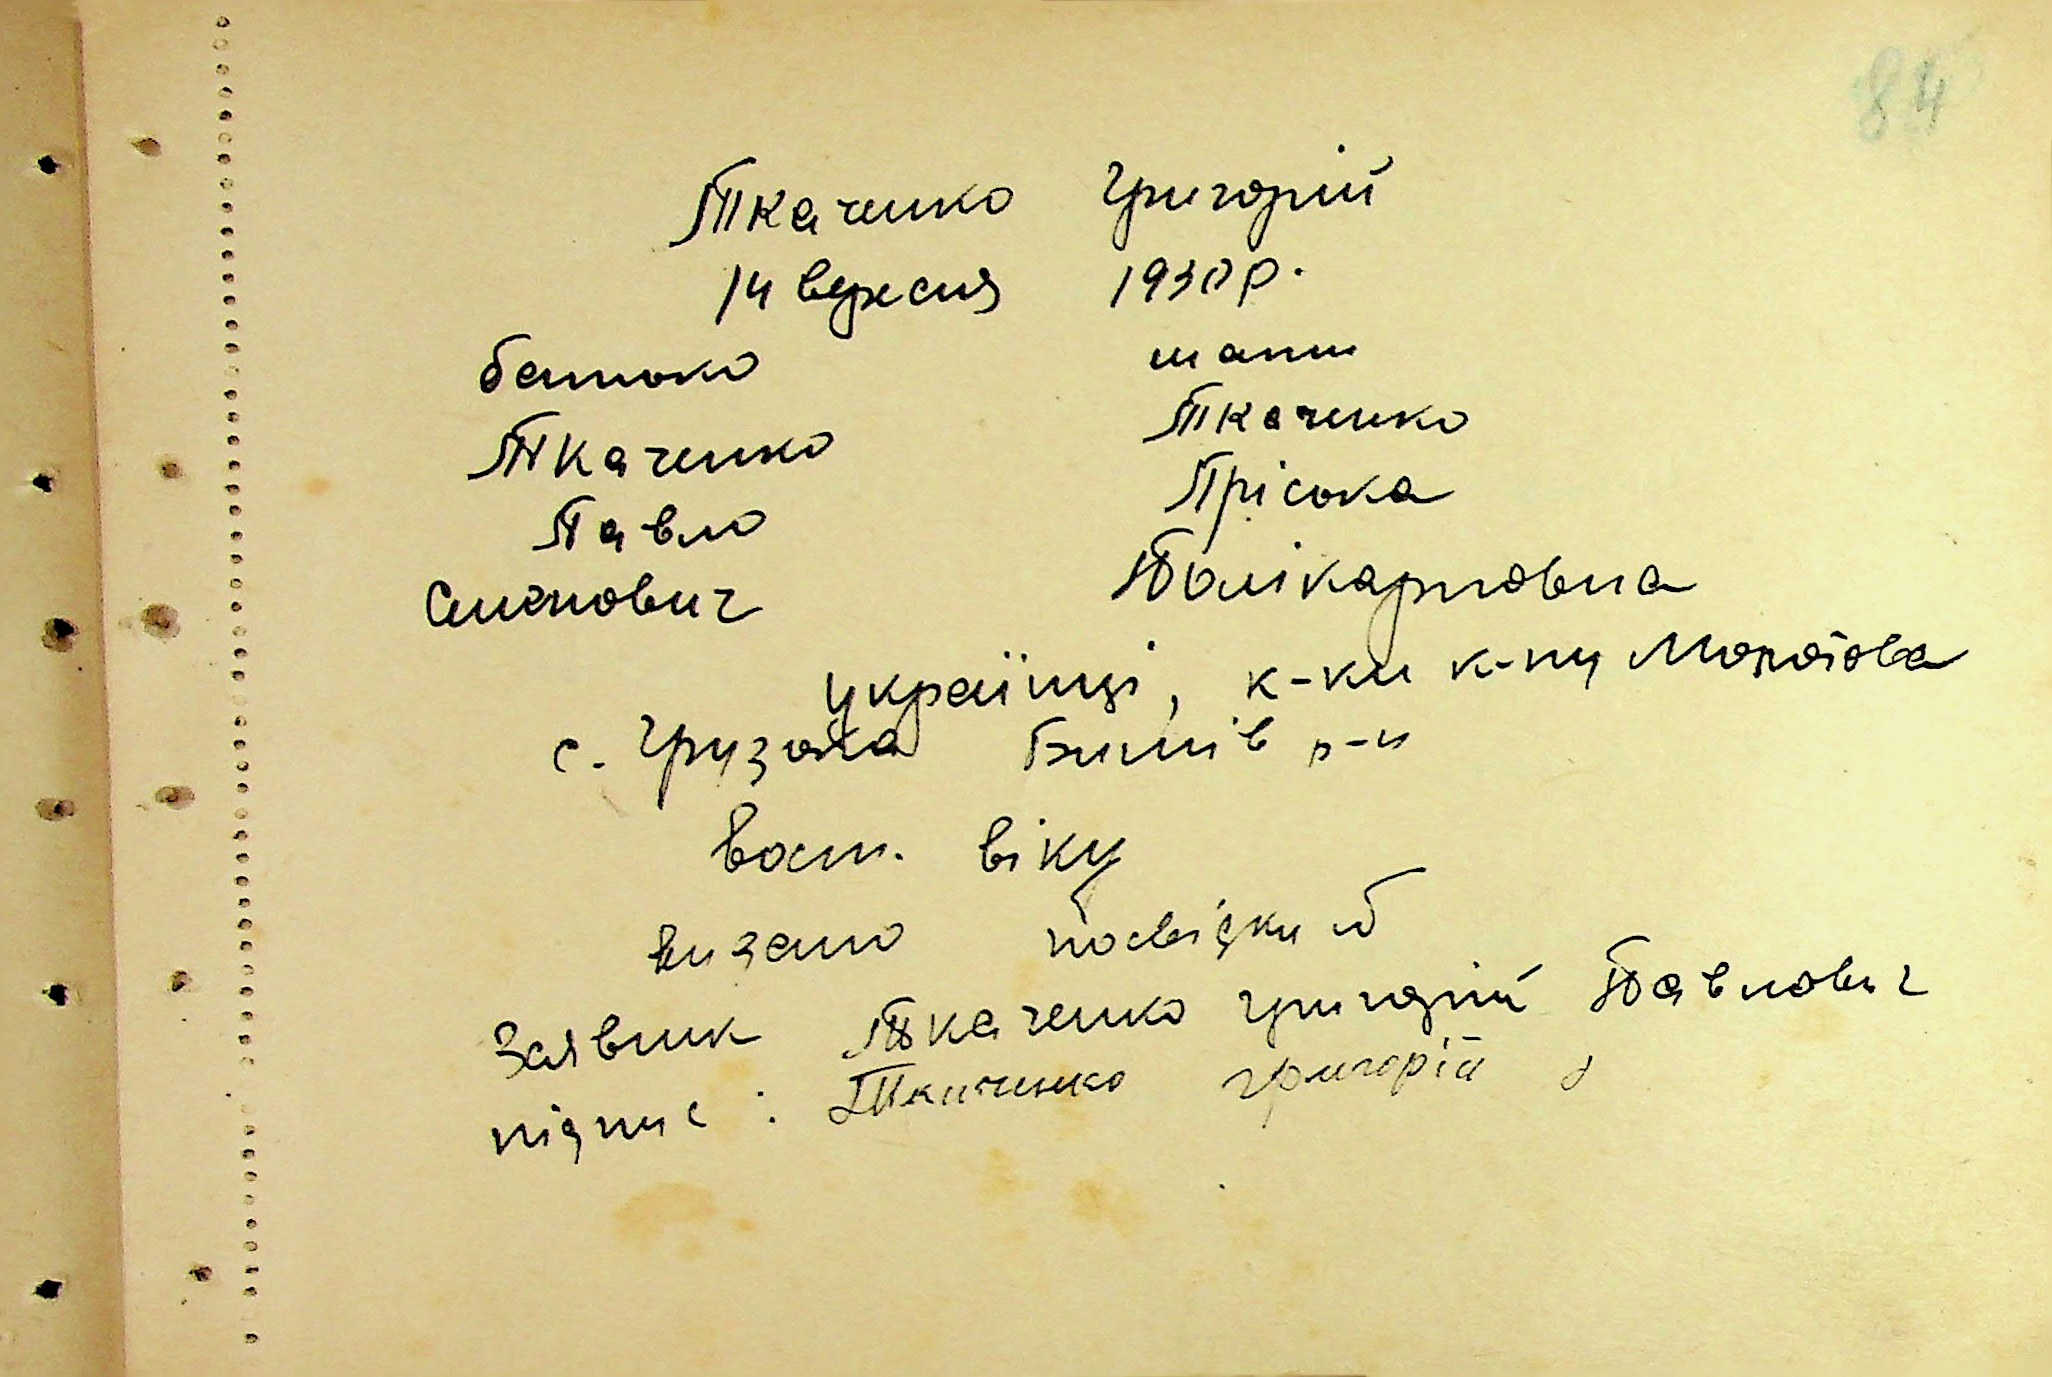 84
Ткаченко Григорій
14 вересня 1930 р.
батько мати
Ткаченко Ткаченко
Павло Пріська
Семенович Полікарповна
українці, к-ки к-пу Молотова
с. Грузьке р-н
вост. віку
видано посвідку
Заявник Ткаченко Григорій Павлович
підпис: Ткаченко Григорій